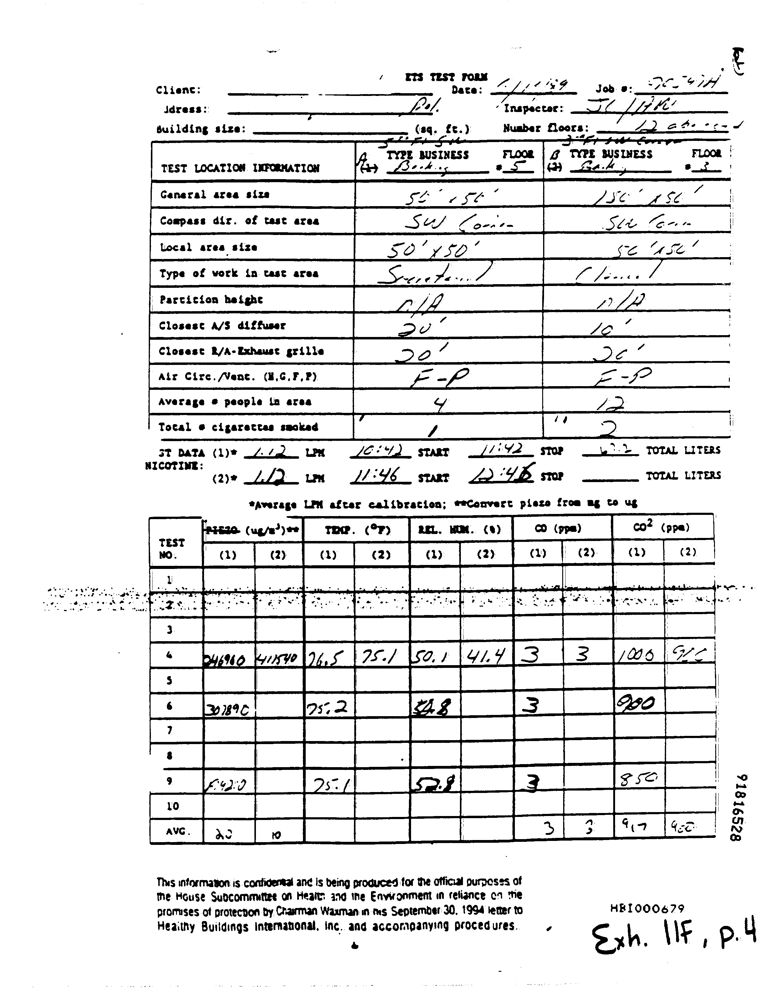 ETS TEST FORM
Client: Date: Job #:
ddress: Inspector:
Building size: (sq. ft.) Number floors: 12
TEST LOCATION INFORMATION A (1) TYPE BUSINESS FLOOR # 5 B (2) TYPE BUSINESS FLOOR # 3
General area size 50' x 50' 150' x 50'
Compass dir. of test area SW Corner SW Corn
Local area size 50' x 50' 50' x 50'
Type of work in test area Secretarial Clerical
Partition height n/A n/A
Closest A/S diffuser 20' 10'
Closest R/A-Exhaust grille 20' 20'
Air Circ./Vent. (N,G,F,P) F-P F-P
Average # people in area 4 12
Total # cigarettes smoked 1 2
ST DATA (1)* 1.12 LPM 10:42 START 11:42 STOP 67.2 TOTAL LITERS
NICOTINE:
(2)* 1.12 LPM 11:46 START 12:46 STOP TOTAL LITERS
*Average LPM after calibration; **Convert piezo from mg to ug
TEST NO. PIEZO (ug/m³)** TEMP. (°F) REL. HUM. (%) CO (ppm) CO² (ppm)
(1) (2) (1) (2) (1) (2) (1) (2) (1) (2)
1
2
3
4 246960 411540 76.5 75.1 50.1 41.4 3 3 1000
5
6 307890 75.2 3 900
7
8
9 75.1 52.8 3 850
10
AVG. 20 10 3 3 917
91816528
This information is confidential and is being produced for the official purposes of
the House Subcommittee on Health and the Environment in reliance on the
promises of protection by Chairman Waxman in his September 30, 1994 letter to
Healthy Buildings International, Inc. and accompanying procedures.
HBI000679
Exh. 11F, p.4